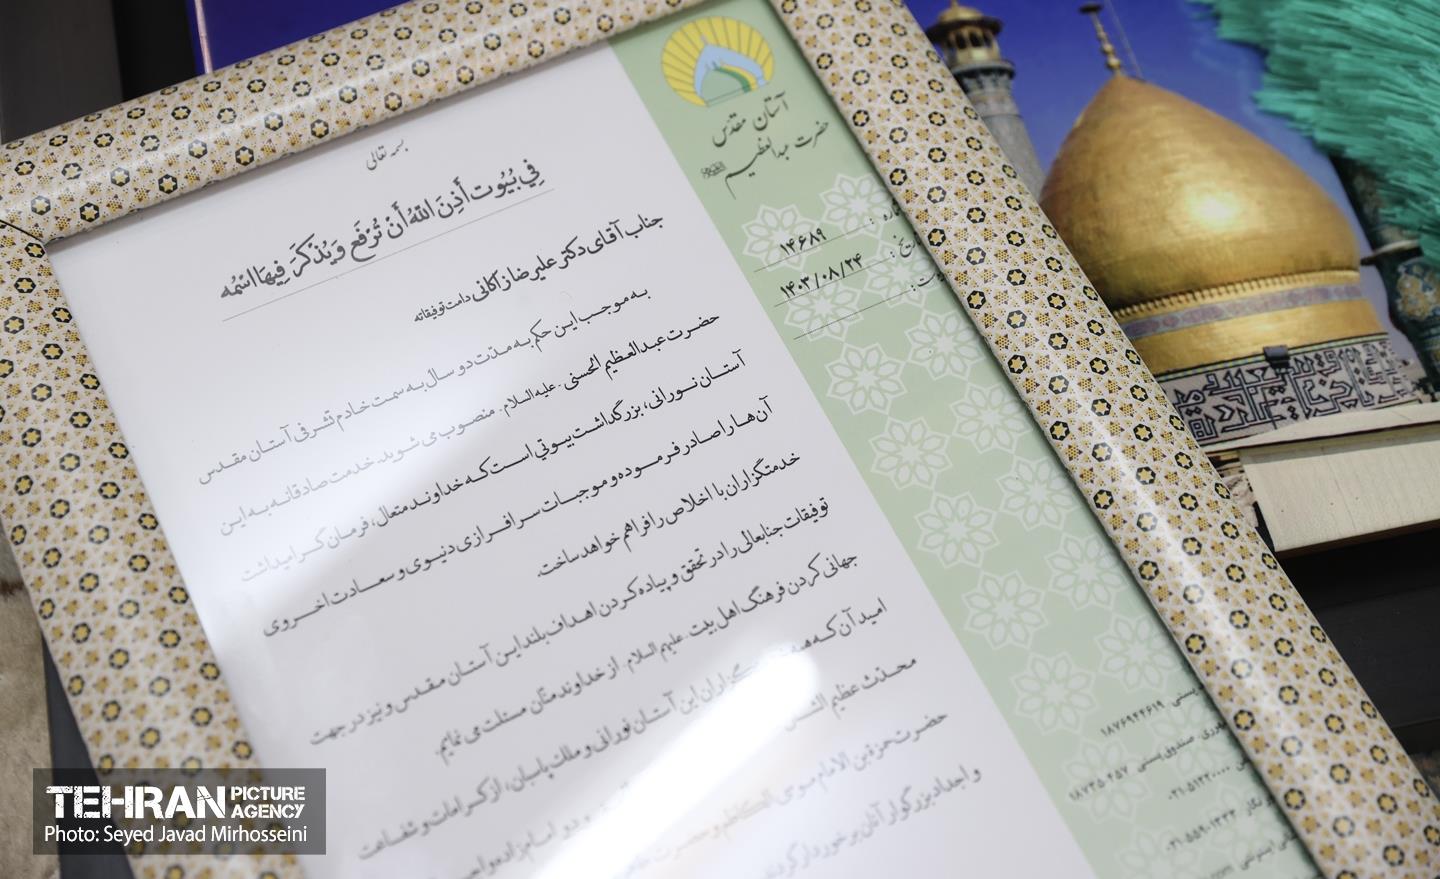 آستان مقدس
حضرت عبدالعظیم
۱۴۶۸۹
۱۴۰۳/۰۸/۲۴
بسمه تعالی
فِي بُيُوت أَذِنَ اللهُ أَنْ تُرْفَع وَيُذْكَرَ فِيهَا اسْمُه
جناب آقای دکتر علیرضا زاکانی دامت توفیقاته
به موجب این حکم به مدت دو سال به سمت خادم تشرفی آستان مقدس
حضرت عبدالعظیم الحسنی - علیه السلام - منصوب می شوید. خدمت صادقانه به این
آستان نورانی، بزرگداشت بیوتی است که خداوند متعال، فرمان گرامیداشت
آن‌ها را صادر فرموده و موجبات سرافرازی دنیوی و سعادت اخروی
خدمتگزاران با اخلاص را فراهم خواهد ساخت.
توفیقات جنابعالی را در تحقق و پیاده کردن اهداف بلند این آستان مقدس و نیز در جهت
جهانی کردن فرهنگ اهل بیت - علیهم السلام - از خداوند منّان مسئلت می نمایم.
امید آن که همه خدمتگزاران این آستان نورانی و ملک پاسبان، از کرامات و شفاعت
محدّث عظیم الشأن
حضرت حمزة بن الامام موسی الکاظم و حضرت طاهر و دو امامزاده واجب
و اجداد بزرگوار آنان برخوردار گردند
پستی ۱۸۷۶۹۴۴۶۱۹
صندوق پستی
۰۲۱-۵۱۲۲۰۰۰۰
TEHRAN PICTURE AGENCY
Photo: Seyed Javad Mirhosseini